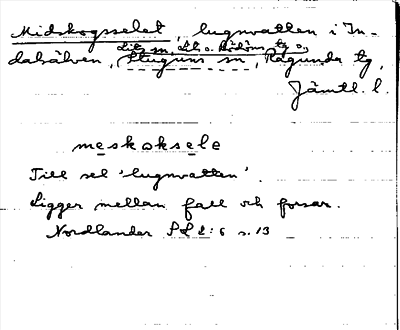 Midskogsselet, lugnvatten i In-
Lits sn, Lits o. Rödöns tg o.
dalsälven, Stuguns sn, Ragunda tg,
Jämtl. l.
meskoksele
Till sel 'lugnvatten'.
Ligger mellan fall och forsar.
Nordlander SL 2:6 s. 13